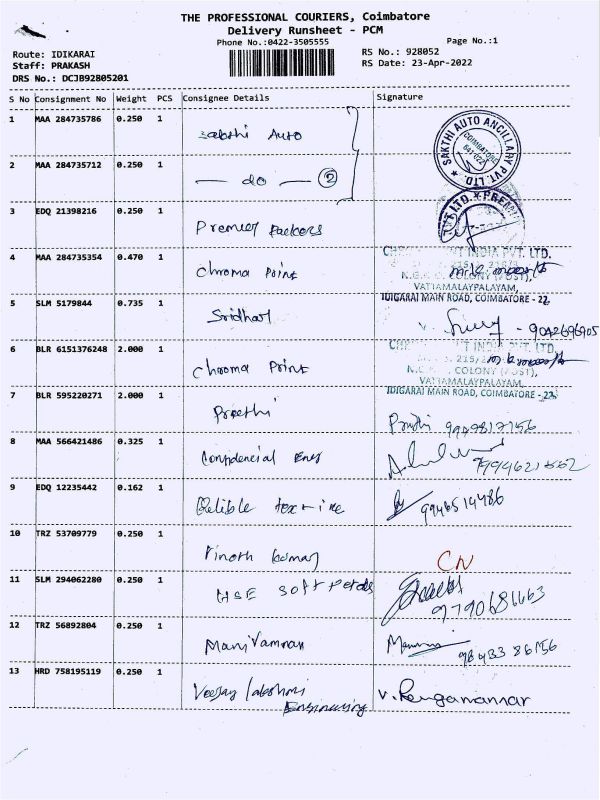 THE PROFESSIONAL COURIERS, Coimbatore
Delivery Runsheet - PCM
Phone No.:0422-3505555
Page No.:1
Route: IDIKARAI
RS No.: 928052
Staff: PRAKASH
RS Date: 23-Apr-2022
DRS No.: DCJB92805201
S No Consignment No Weight PCS Consignee Details Signature
1 MAA 284735786 0.250 1 Sakthi Auto
SAKTHI AUTO ANCILLARY PVT. LTD.
COIMBATORE
641 022
2 MAA 284735712 0.250 1 — do — 2
3 EDQ 21398216 0.250 1 Premier
4 MAA 284735354 0.470 1 Chroma Point
INDIA PVT. LTD.
COLONY (POST),
VATTAMALAYPALAYAM,
IDIGARAI MAIN ROAD, COIMBATORE - 22.
5 SLM 5179844 0.735 1 Sridhar - 9042696905
6 BLR 6151376248 2.000 1 Chroma Point
COLONY (POST),
VATTAMALAYPALAYAM,
IDIGARAI MAIN ROAD, COIMBATORE - 22.
7 BLR 595220271 2.000 1 Preethi
8 MAA 566421486 0.325 1
9 EDQ 12235442 0.162 1 9946514486
10 TRZ 53709779 0.250 1 Vinoth Kumar CN
11 SLM 294062280 0.250 1 HSE Soft 9790681663
12 TRZ 56892804 0.250 1 Manivannan
13 HRD 758195119 0.250 1 Veejay Lakshmi V. Rengamannar
Engineering